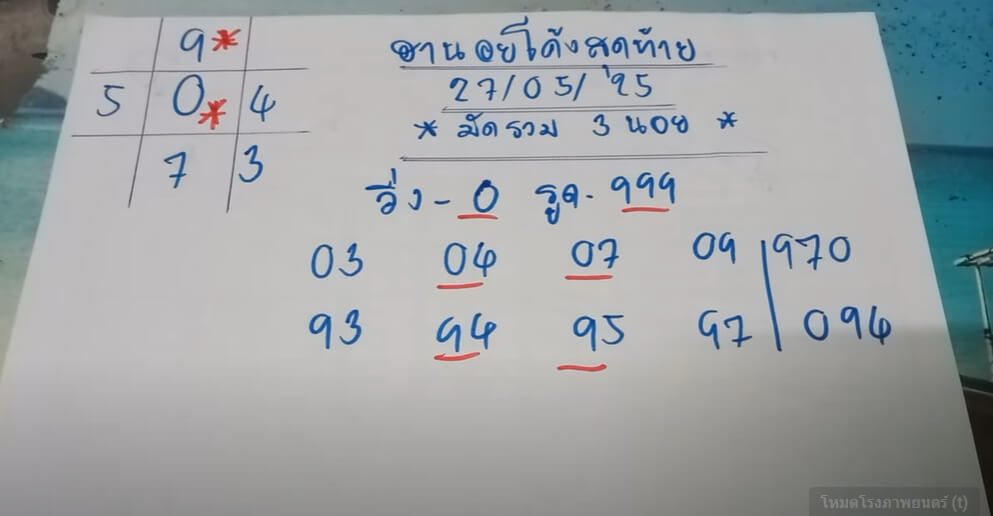 9*
5 0* 4
7 3
ฮานอยโค้งสุดท้าย
27/05/'25
* มัดรวม 3 นอย *
วิ่ง - 0 รูด - 999
03 04 07 09 970
93 94 95 97 094
โหมดโรงภาพยนตร์ (t)